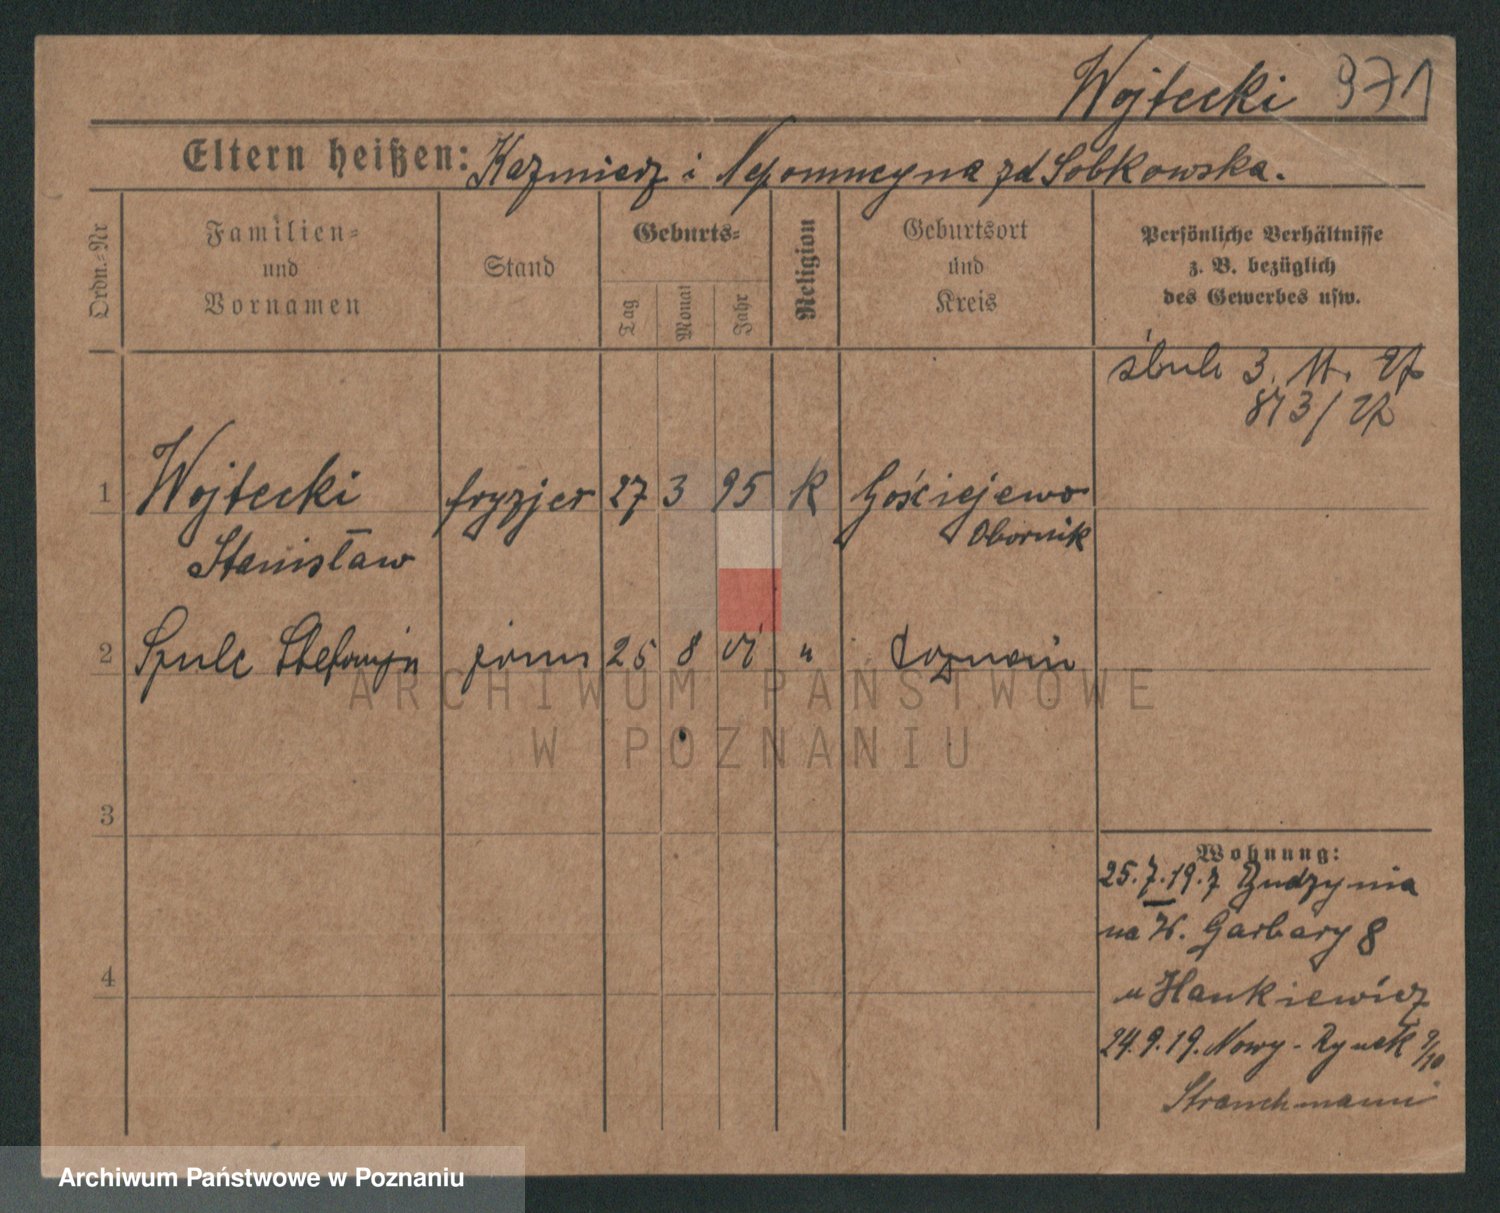 Wojtecki 971
Eltern heißen: Kazmierz i Nepomucyna zd Sobkowska.
Ordn.-Nr
Familien-
und
Vornamen
Stand
Geburts-
Tag
Monat
Jahr
Religion
Geburtsort
und
Kreis
Persönliche Verhältnisse
z. B. bezüglich
des Gewerbes usw.
ślub 3. 11. 27
873/27
1 Wojtecki fryzjer 27 3 95 K Gościejewo
Stanisław Obornik
2 Szulc Stefanja żona 25 8 " Poznań
3
4
Wohnung:
25.7.19. z Budzynia
na W. Garbary 8
u Hankiewicz
24.9.19. Nowy-Rynek 9/10
Strauchmann
ARCHIWUM PAŃSTWOWE
W POZNANIU
Archiwum Państwowe w Poznaniu